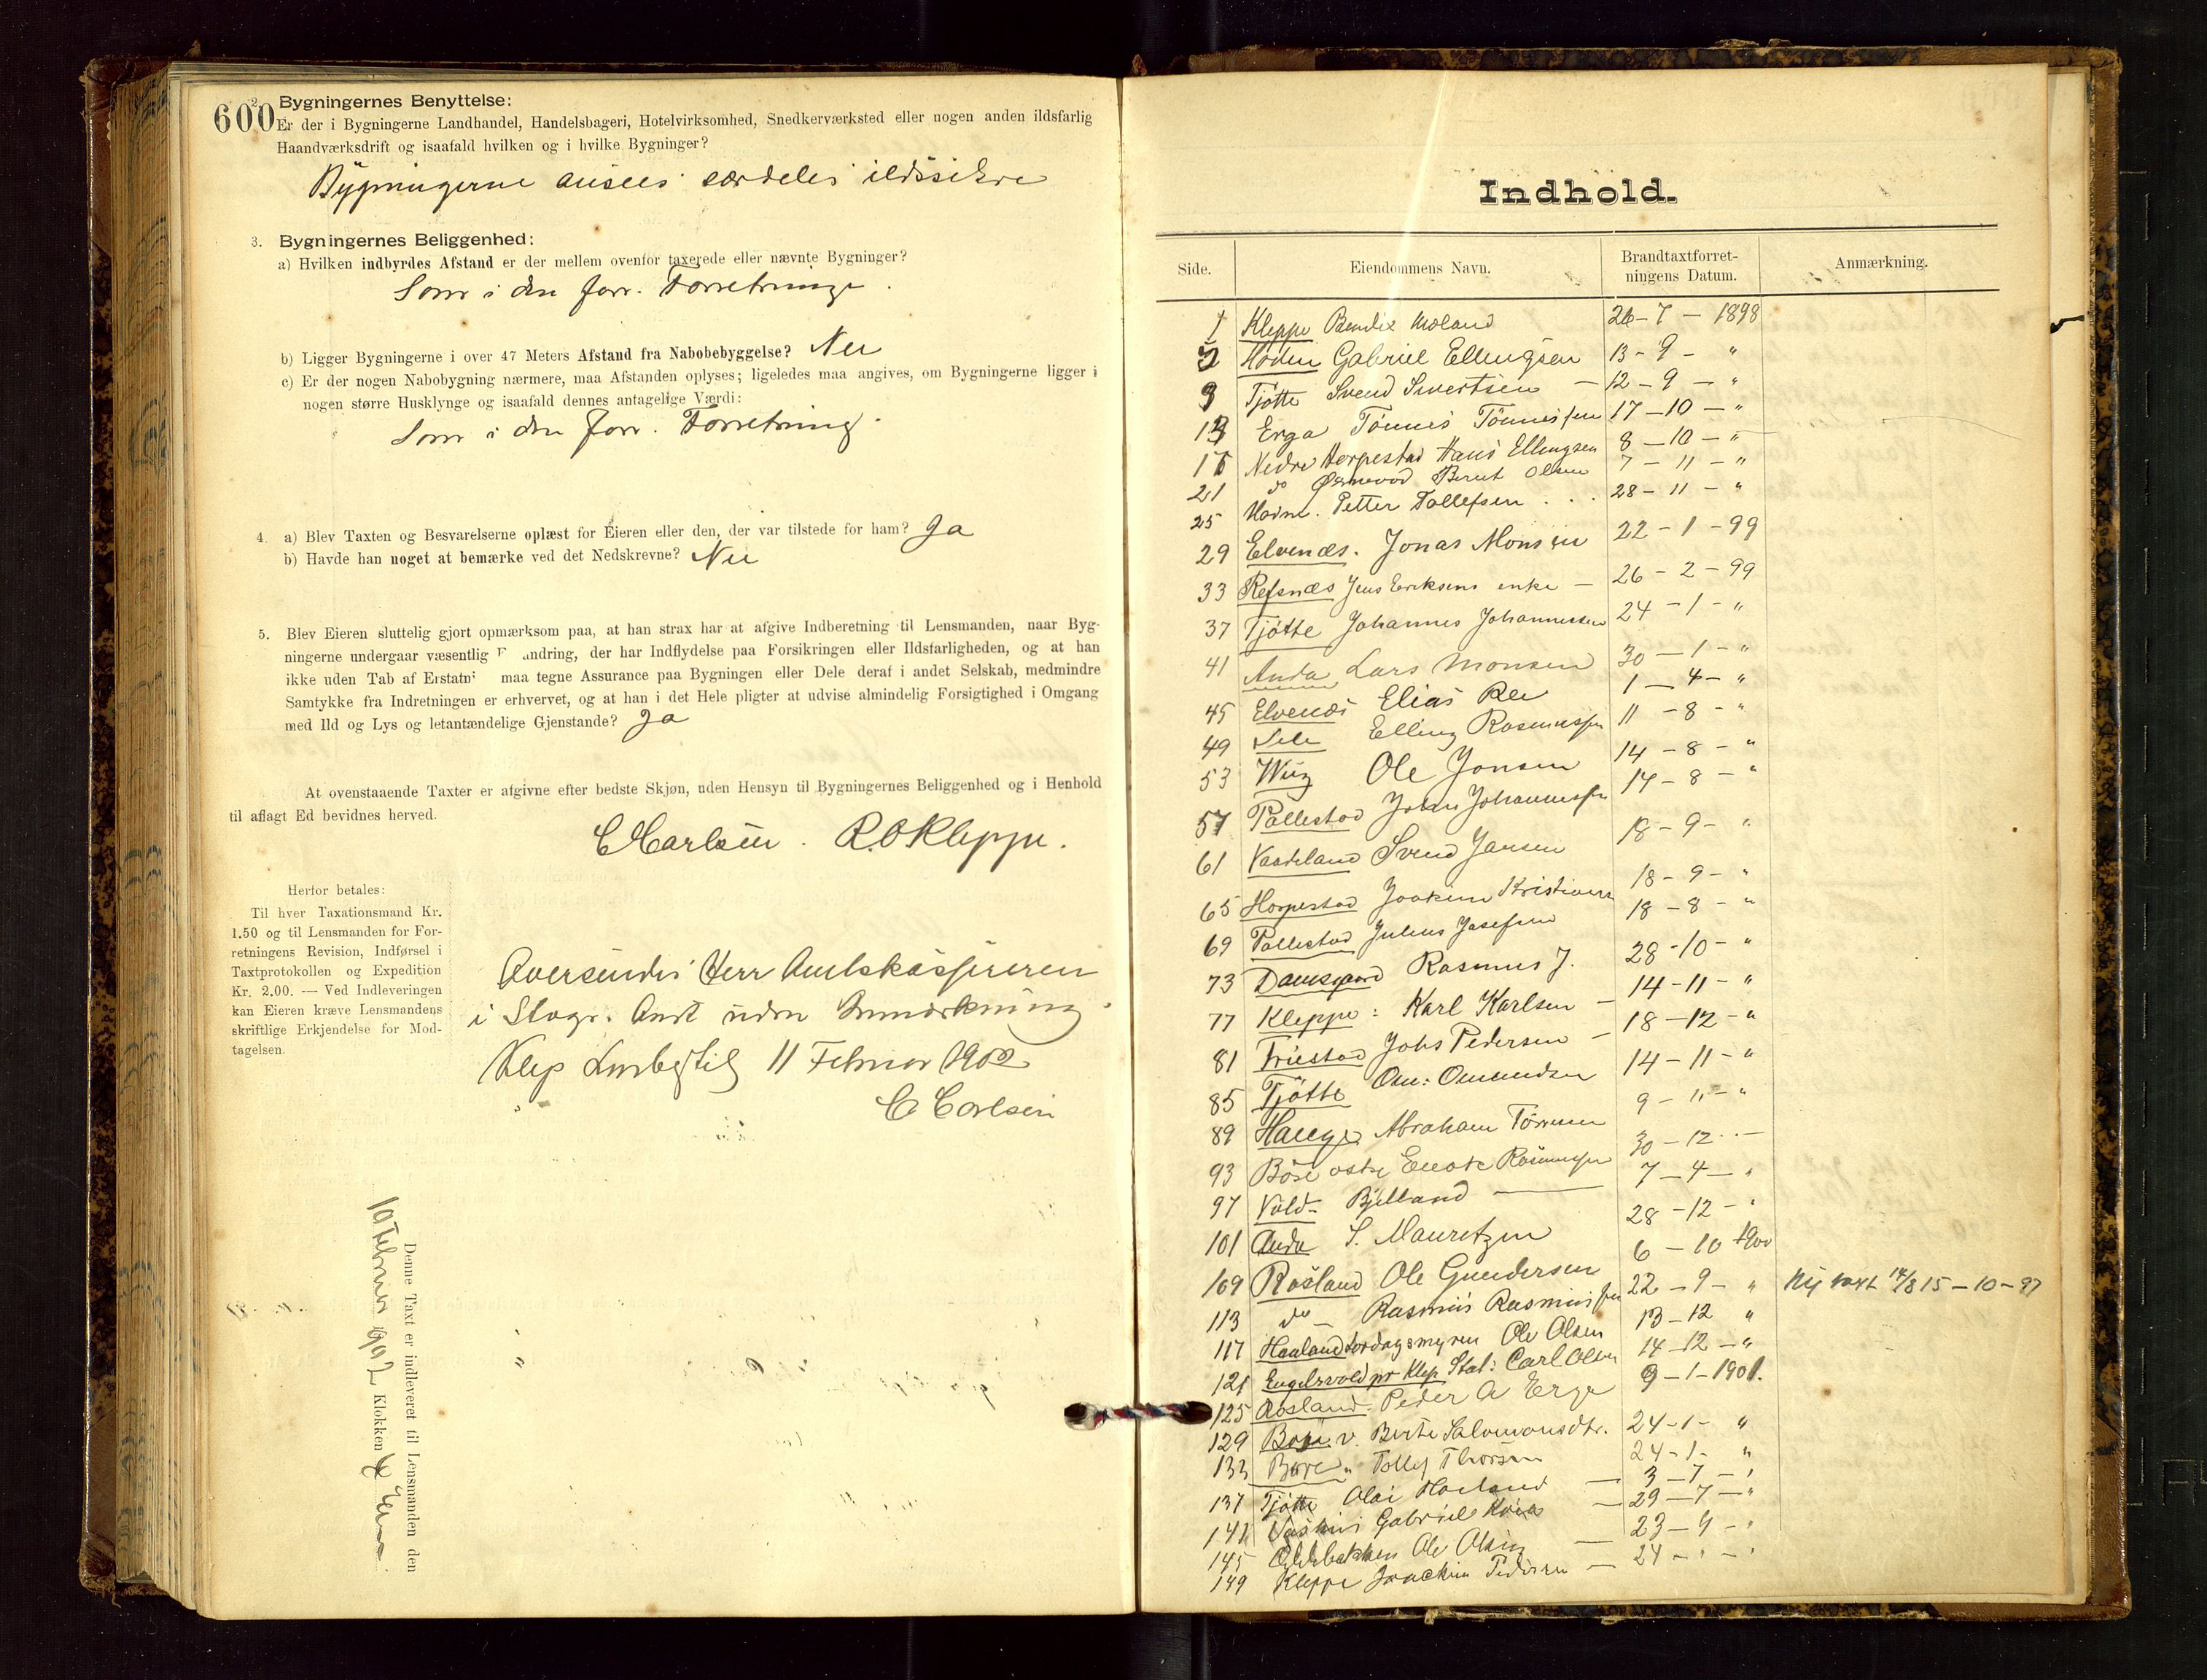 600
2. Bygningernes Benyttelse:
Er der i Bygningerne Landhandel, Handelsbageri, Hotelvirksomhed, Snedkerværksted eller nogen anden ildsfarlig
Haandværksdrift og isaafald hvilken og i hvilke Bygninger?
Bygningerne ansees særdeles ildssikre
3. Bygningernes Beliggenhed:
a) Hvilken indbyrdes Afstand er der mellem ovenfor taxerede eller nævnte Bygninger?
Som i den forr. Forretninge.
b) Ligger Bygningerne i over 47 Meters Afstand fra Nabobebyggelse? Nei
c) Er der nogen Nabobygning nærmere, maa Afstanden oplyses; ligeledes maa angives, om Bygningerne ligger i
nogen større Husklynge og isaafald dennes antagelige Værdi:
Som i den forr. Forretning.
4. a) Blev Taxten og Besvarelserne oplæst for Eieren eller den, der var tilstede for ham? Ja
b) Havde han noget at bemærke ved det Nedskrevne? Nei
5. Blev Eieren sluttelig gjort opmærksom paa, at han strax har at afgive Indberetning til Lensmanden, naar Byg-
ningerne undergaar væsentlig F andring, der har Indflydelse paa Forsikringen eller Ildsfarligheden, og at han
ikke uden Tab af Erstatn maa tegne Assurance paa Bygningen eller Dele deraf i andet Selskab, medmindre
Samtykke fra Indretningen er erhvervet, og at han i det Hele pligter at udvise almindelig Forsigtighed i Omgang
med Ild og Lys og letantændelige Gjenstande? Ja
At ovenstaaende Taxter er afgivne efter bedste Skjøn, uden Hensyn til Bygningernes Beliggenhed og i Henhold
til aflagt Ed bevidnes herved.
C Carlsen. R.O Kleppe.
Herfor betales:
Til hver Taxationsmand Kr.
1.50 og til Lensmanden for For-
retningens Revision, Indførsel i
Taxtprotokollen og Expedition
Kr. 2.00. — Ved Indleveringen
kan Eieren kræve Lensmandens
skriftlige Erkjendelse for Mod-
tagelsen.
Oversendes Herr Amtskassereren
i Stavgr. Amt uden Anmærkning.
Klep 11 Februar 1902
C Carlsen
Denne Taxt er indleveret til Lensmanden den
10 Februar 1902 Klokken
Indhold.
Side. Eiendommens Navn. Brandtaxtforret-
ningens Datum. Anmærkning.
1 Kleppe Bendix Moland 26-7-1898
5 Hoden Gabriel Ellingsen 13-9-"
9 Tjøtte Svend Sivertsen — 12-9-"
13 Erga Tønnes Tønnessen 17-10-"
17 Nedre Horpestad Hans Ellingsen 8-10-"
21 do Bernt Olsen 7-11-"
25 Petter Tollefsen ... 28-11-"
29 Elvenæs. Jonas Monsen 22-1-99
33 Refsnæs Jens Eriksens enke — 26-2-99
37 Tjøtte Johannes Johannessen 24-1-"
41 Anda Lars Monsen 30-1-"
45 Elvenæs Elias Ree 1-4-"
49 Sele Elling Rasmussen 11-8-"
53 Wiig Ole Jonsen 14-8-"
57 Pollestad Johs Johannessen 14-8-"
61 Vasteland Svend Jansen 18-9-"
65 Horpestad Joakim Kristians 18-9-"
69 Pollestad Julius Josefsen 18-8-"
73 Damsgaard Rasmus J. 28-10-"
77 Kleppe: Karl Karlsen — 14-11-"
81 Friestad Johs Pedersen — 18-12-"
85 Tjøtte Om: Omundsen 14-11-"
89 Hauge Abraham Tørresen 9-11-"
93 Børe østre Enok Rasmussen 30-12-"
97 Vold- Bjelland — 7-4-"
101 Anda S. Mauretzen 28-12-"
109 Røsland Ole Gundersen 6-10 1900
113 do — Rasmus Rasmussen 22-9-" Ny taxt 14/8 15-10-97
117 Haaland Lordagsmyren Ole Olsen 13-12 "
121 Engelsvold pr Klep Stat: Carl Olsen 14-12-"
125 Røsland. Peder A Erga 9-1-1901.
129 Bore v. Berte Salomonsdtr. 24-1- "
133 Bore " Tollef Thorsen 24-1- "
137 Tjøtte Olai Haaland — 3-7-"
141 Gabriel — 29-7-"
145 Ole Olsen — 23-9-"
149 Kleppe Joachim Pedersen — 24-"-"